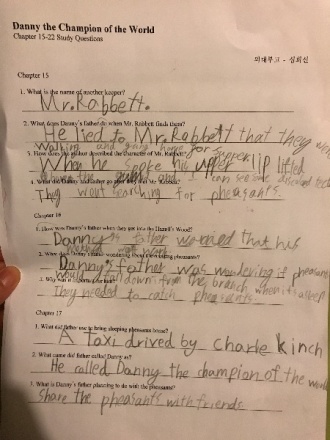 Danny the Champion of the World
Chapter 15-22 Study Questions
외대루고 - 심희신
Chapter 15
1. What is the name of another keeper?
Mr. Rabbett.
2. What does Danny's father do when Mr. Rabbett finds them?
He lied to Mr. Rabbett that they were
walking and going home for supper.
3. How does the author described the character of Mr. Rabbett?
When he spoke his upper lip lifted
above the gums and I can see
4. What did Danny and father go after they met Mr. Rabbett?
They went searching for pheasants.
Chapter 16
1. How were Danny's father when they got into the Hazell's Wood?
Danny's father worried that his
2. What does Danny's father wondering about
Danny's father was wondering if pheasants
would fall down from the branch when it asleep
3. Why was it important for them
They needed to catch pheasants.
Chapter 17
1. What did father use to bring sleeping pheasants home?
A taxi drived by Charle Kinch
2. What name did father called Danny as?
He called Danny the champion of the world
3. What is Danny's father planning to do with the pheasants?
share the pheasants with friends